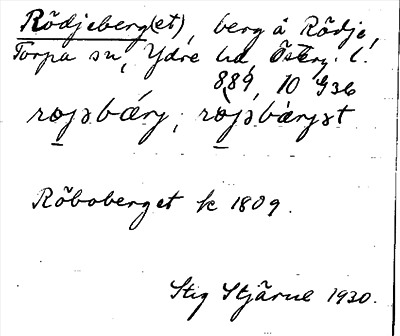 Rödjeberg(et), berg å Rödje,
Torpa sn, Ydre hd, Österg. l.
889, 10 G36
rojsbærj, rojsbærjst
Röboberget k 1809.
Stig Stjärne 1930.